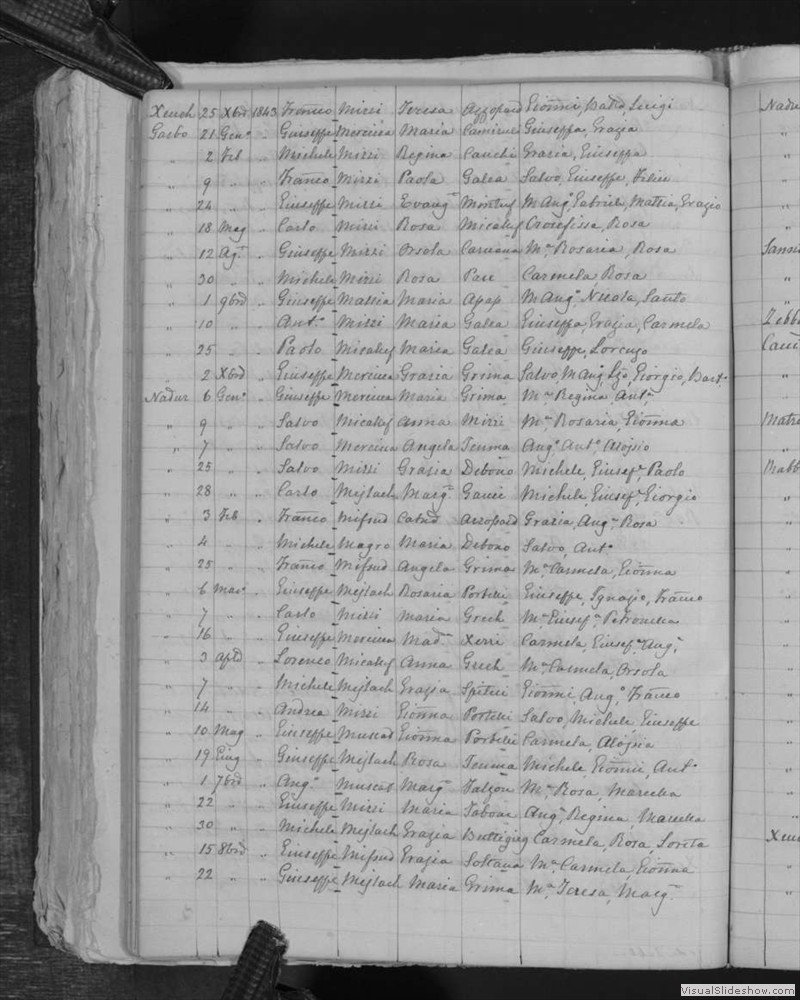 Xeuch 25 Xbre 1843 Franco Mizzi Teresa Azzopard Giõnni, Batta, Luigi
Garbo 21 Genº " Giuseppe Mercieca Maria Camilleri Giuseppa, Grazia
" 2 Feb " Michele Mizzi Regina Cauchi Grazia, Giuseppa
" 9 " " Franco Mizzi Paola Galea Salvo, Giuseppe, Felice
" 24 " " Giuseppe Mizzi Evangª Montuf M. Angª, Gabriele, Mattia, Grazio
" 18 Mag " Carlo Mizzi Rosa Micallef Crocefissa, Rosa
" 12 Agº " Giuseppe Mizzi Orsola Caruana Mª Rosaria, Rosa
" 30 " " Michele Mizzi Rosa Pace Carmela, Rosa
" 1 9bre " Giuseppe Massia Maria Apap M. Angº, Nicola, Santo
" 10 " " Antº Mizzi Maria Galea Giuseppa, Grazia, Carmela
" 25 " " Paolo Micallef Maria Galea Giuseppe, Lorenzo
" 2 Xbre " Giuseppe Mercieca Grazia Grima Salvo, M. Angº, Giorgio, Bartº
Nadur 6 Genº " Giuseppe Mercieca Maria Grima Mª Regina, Antª
" 9 " " Salvo Micallef Anna Mizzi Mª Rosaria, Giõnna
" 7 " " Salvo Mercieca Angela Teuma Angº, Antº, Alojsio
" 25 " " Salvo Mizzi Grazia Debono Michele, Giusefª, Paolo
" 28 " " Carlo Mejlach Margª Gauci Michele, Giusefª, Giorgio
" 3 Feb " Franco Mifsud Catnª Azzopard Grazia, Angª, Rosa
" 4 " " Michele Magro Maria Debono Salvo, Antº
" 25 " " Franco Mifsud Angela Grima Mª Carmela, Giõnna
" 6 Marº " Giuseppe Mejlach Rosaria Portelli Giuseppe, Ignazio, Franco
" 7 " " Carlo Mizzi Maria Grech Mª Giusefª, Petronilla
" 16 " " Giuseppe Mercieca Madª Xerri Carmela, Giusefª, Angª
" 3 Aple " Lorenzo Micallef Anna Grech Mª Carmela, Orsola
" 7 " " Michele Mejlach Grazia Spiteri Giõnni, Angº, Franco
" 14 " " Andrea Mizzi Giõnna Portelli Salvo, Michele, Giuseppe
" 10 Mag " Giuseppe Muscad Giõnna Portelli Carmela, Alojsia
" 19 Giug " Giuseppe Mejlach Rosa Teuma Michele, Giõnni, Antº
" 1 7bre " Angº Muscat Margª Falzon Mª Rosa, Marella
" 22 " " Giuseppe Mizzi Maria Tabone Angª, Regina, Marella
" 30 " " Michele Mejlach Grazia Buttigieg Carmela, Rosa, Loreta
" 15 8bre " Giuseppe Mifsud Grazia Soltana Mª Carmela, Giõnna
" 22 " " Giuseppe Mejlach Maria Grima Mª Teresa, Margª
Nadur
VisualSlideshow.com